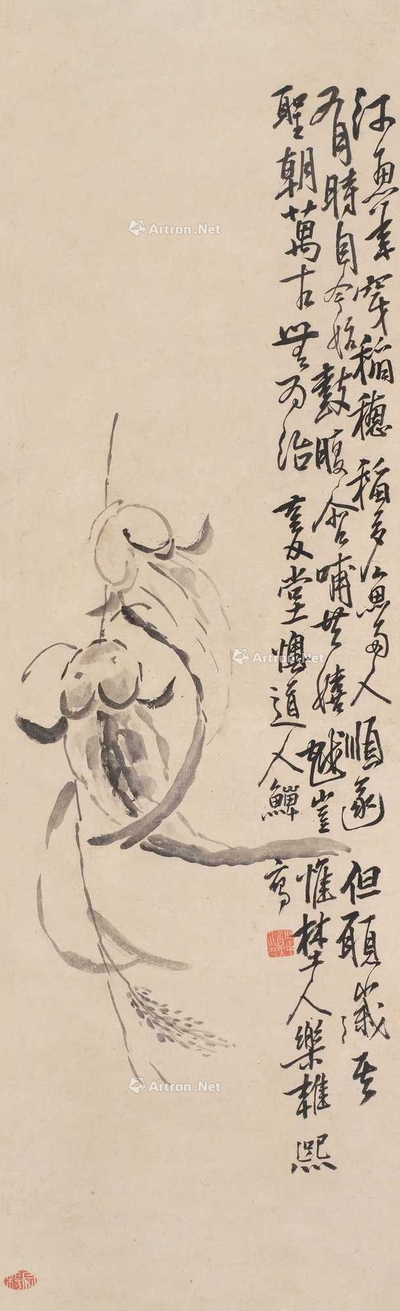 河魚來穿稻穗稻多魚多人順遂但願歲其
有月時自今始鼓腹含哺共嬉越豈惟埜人樂雍熙
聖朝萬古無為治 復堂懊道人鱓寫
Artron.Net
Artron.Net
Artron.Net